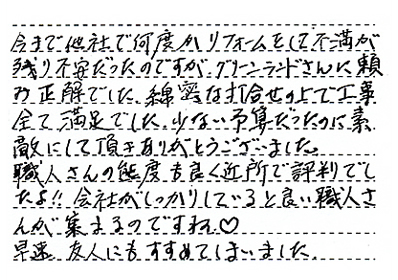 今まで他社で何度かリフォームをして不満が
残り不安だったのですが、グリーンランドさんに頼
み正解でした。綿密な打合せの上で工事
全て満足でした。少ない予算だったのに素
敵にして頂きありがとうございました。
職人さんの態度も良く近所で評判でし
たよ!! 会社がしっかりしていると良い職人さ
んが集まるのですね♡
早速、友人にもすすめてしまいました。